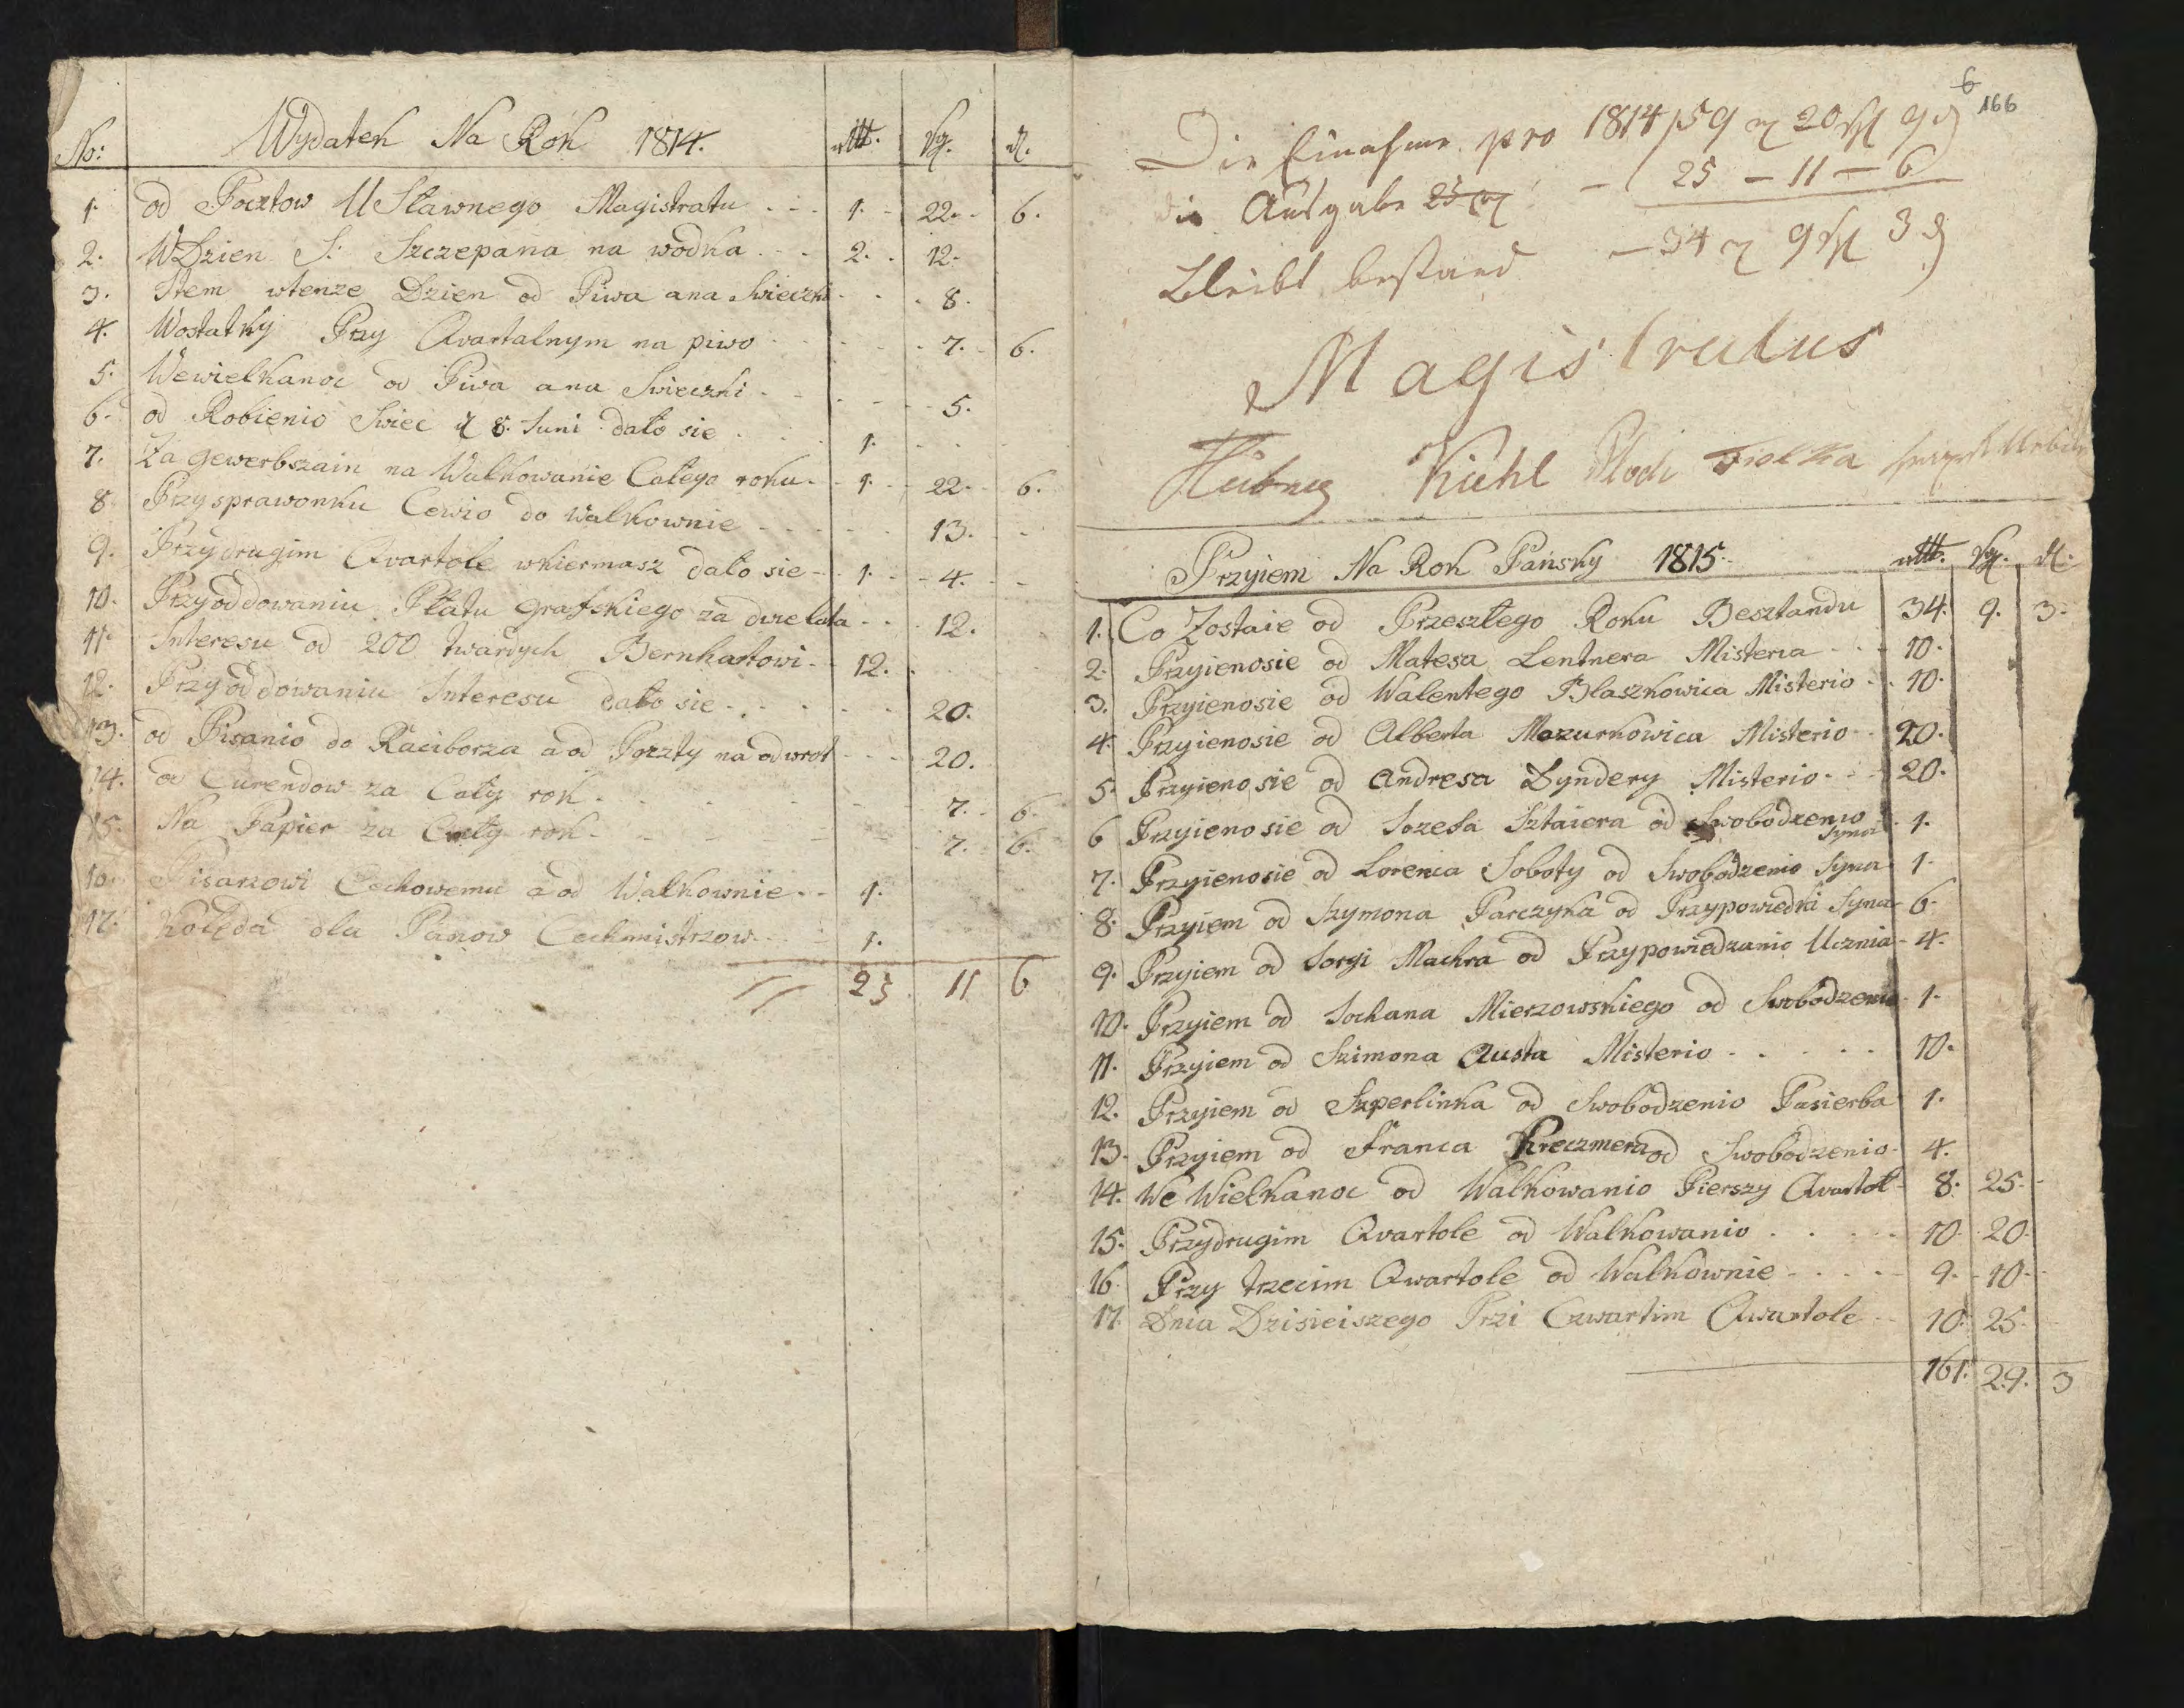 No: Wydatek Na Rok 1814. rtt. sgl. d.
1. od Pocztow U Sławnego Magistratu . . . 1. - 22. - 6.
2. WDzien S: Szczepana na wodka . . . 2. . 12.
3. Item wtenze Dzien od Piwa ana Swieczki . . . 8.
4. Wostatky Przy Qvartalnym na piwo . . . 7. - 6.
5. Wewielkanoc od Piwa ana Swieczki . . . 5.
6. od Robienio Swiec d 8. Juni dało sie . . . 1. - . -
7. Za gewerbszain na Walkowanie Całego roku . - 1. - 22. - 6.
8. Przysprawonku Cewio do Walkownie - - - 13. - -
9. Przydrugim Qvartole wkiermasz dało sie - - 1. - - 4. - -
10. Przyoddowaniu Płatu Grafskiego za dwie lata . . . 12.
11. Interesu od 200 twardych Bernhartowi . - 12. .
12. Przyoddowaniu Interesu dało sie . . . 20.
13. od Pisanio do Raciborza a od Poczty na odwrot - - - 20.
14. od Curendow za Cały rok . . . 7. - 6.
15. Na Papier za Cały rok . - - 7. - 6.
16. Pisarzowi Cechowemu a od Walkownie . - - 1.
17. Kolęda dla Panow Cechmistrzow . . - 1.
25 11 6
6
166
Die Einahme pro 1814 / 59 r 20 sgl 9 d
die Ausgabe 25 r - 25 - 11 - 6
Bleibt bestand - 34 r 9 sgl 3 d
Magistratus
Kiehl Fiolka
Przyiem Na Rok Pańsky 1815. rtt. sgl. d.
1. Co Zostaie od Przeszłego Roku Besztandu 34. 9. 3.
2. Przyienosie od Matesa Lentnera Misteria . . . 10.
3. Przyienosie od Walentego Błaszkowica Misterio . . 10.
4. Przyienosie od Alberta Mazurkowica Misterio . . 20.
5. Przyienosie od Andresa Lyndery Misterio . . . 20.
6 Przyienosie od Jozefa Sztaiera od Swobodzenio Syna . 1.
7. Przyienosie od Lorenca Soboty od Swobodzenio Syna 1.
8. Przyiem od Szymona Parczyka od Przypowiedki Syna 6.
9. Przyiem od Jorgi Machra od Przypowiedzanio Ucznia - 4.
10. Przyiem od Johana Mierzowskiego od Swobodzenio . 1.
11. Przyiem od Szimona Austa Misterio . . . . . 10.
12. Przyiem od Szperlinka od Swobodzenio Pasierba 1.
13. Przyiem od Franca Kreczmera od Swobodzenio . 4.
14. We Wielkanoc od Walkowanio Pierszy Qvartoł - 8. 25. -
15. Przydrugim Qvartole od Walkowanio . . . . . 10. 20.
16. Przy trzecim Qwartole od Walkownie - . . . - 9. - 10. -
17. Dnia Dzisieiszego Przi Czwartim Qwartole . . 10. 25.
161. 29. 3